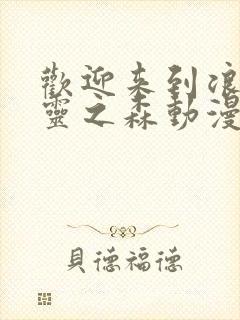 歡迎来到
靈之森動漫
貝德福德